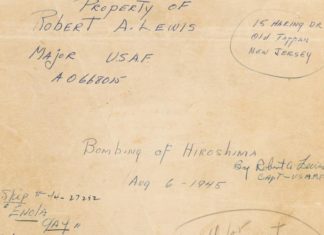 Property of
Robert A. Lewis
Major USAF
AO668015
15 Haring Dr
Old Tappan
New Jersey
Bombing of Hiroshima
By Robert A Lewis
Capt - USAAF
Aug 6 - 1945
Ship #-44-27292
"ENOLA
GAY"